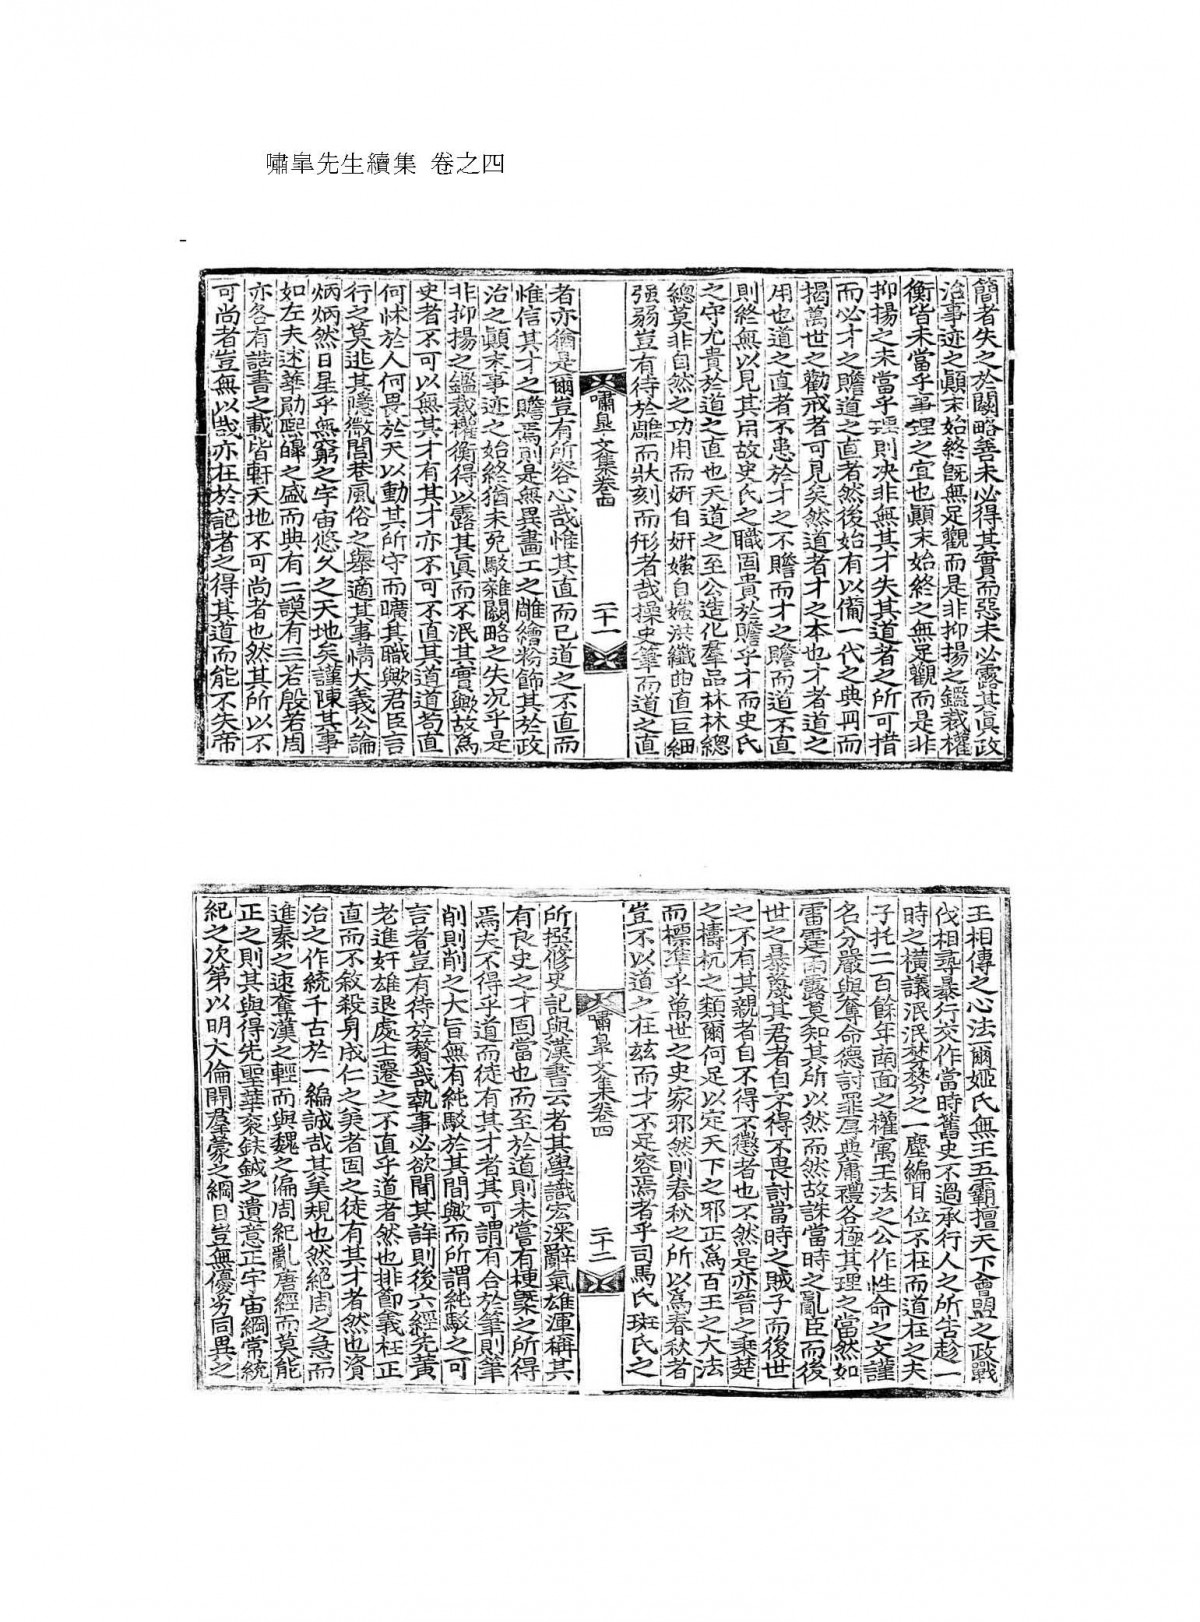 嘯皐先生續集 卷之四
-
簡者失之於闕略善未必得其實而惡未必露其眞政
治事迹之顚末始終旣無足觀而是非抑揚之鑑裁權
衡皆未當乎事理之宜也顚末始終之無足觀而是非
抑揚之未當乎理則决非無其才失其道者之所可措
而必才之贍道之直者然後始有以備一代之典冊而
揭萬世之勸戒者可見矣然道者才之本也才者道之
用也道之直者不患於才之不贍而才之贍而道不直
則終無以見其用故史氏之職固貴於贍乎才而史氏
之守尤貴於道之直也天道之至公造化羣品林林總
總莫非自然之功用而姸自姸媸自媸洪纖曲直巨細
强弱豈有待於雕而狀刻而形者哉操史筆而道之直
嘯皐文集卷四
二十一
者亦猶是爾豈有所容心哉惟其直而已道之不直而
惟信其才之贍焉則是無異畫工之雕繪粉飾其於政
治之顚末事迹之始終猶未免駁雜闕略之失况乎是
非抑揚之鑑裁權衡得以露其眞而不泯其實歟故爲
史者不可以無其才有其才亦不可不直其道道苟直
何怵於人何畏於天以動其所守而曠其職歟君臣言
行之莫逃其隱微閭巷風俗之畢適其事情大義公論
炳炳然日星乎無窮之宇宙悠久之天地矣謹陳其事
如左夫述華勛熙皡之盛而典有二謨有三若殷若周
亦各有誥書之載皆軒天地不可尚者也然其所以不
可尚者豈無以哉亦在於記者之得其道而能不失帝
王相傳之心法爾姬氏無王五霸擅天下會盟之政戰
伐相尋暴行交作當時舊史不過承行人之所告赴一
時之橫議泯泯棼棼之一塵編耳位不在而道在之夫
子托二百餘年南面之權寓王法之公作性命之文謹
名分嚴與奪命德討罪厚典庸禮各極其理之當然如
雷霆雨露莫知其所以然而然故誅當時之亂臣而後
世之暴蔑其君者自不得不畏討當時之賊子而後世
之不有其親者自不得不懲者也不然是亦晉之乘楚
之檮杌之類爾何足以定天下之邪正爲百王之大法
而標準乎萬世之史家邪然則春秋之所以爲春秋者
豈不以道之在玆而才不足容焉者乎司馬氏班氏之
嘯皐文集卷四
二十二
所撰修史記與漢書云者其學識宏深辭氣雄渾稱其
有良史之才固當也而至於道則未嘗有梗槩之所得
焉夫不得乎道而徒有其才者其可謂有合於筆則筆
削則削之大旨無有純駁於其間歟而所謂純駁之可
言者豈有待於贅哉執事必欲聞其詳則後六經先黃
老進奸雄退處士遷之不直乎道者然也排節義枉正
直而不敘殺身成仁之美者固之徒有其才者然也資
治之作統千古於一編誠哉其美規也然絕周之急而
進秦之速奪漢之輕而與魏之偏周紀亂唐經而莫能
正之則其與得先聖華衮鈇鉞之遺意正宇宙綱常統
紀之次第以明大倫開羣蒙之綱目豈無優劣同異之